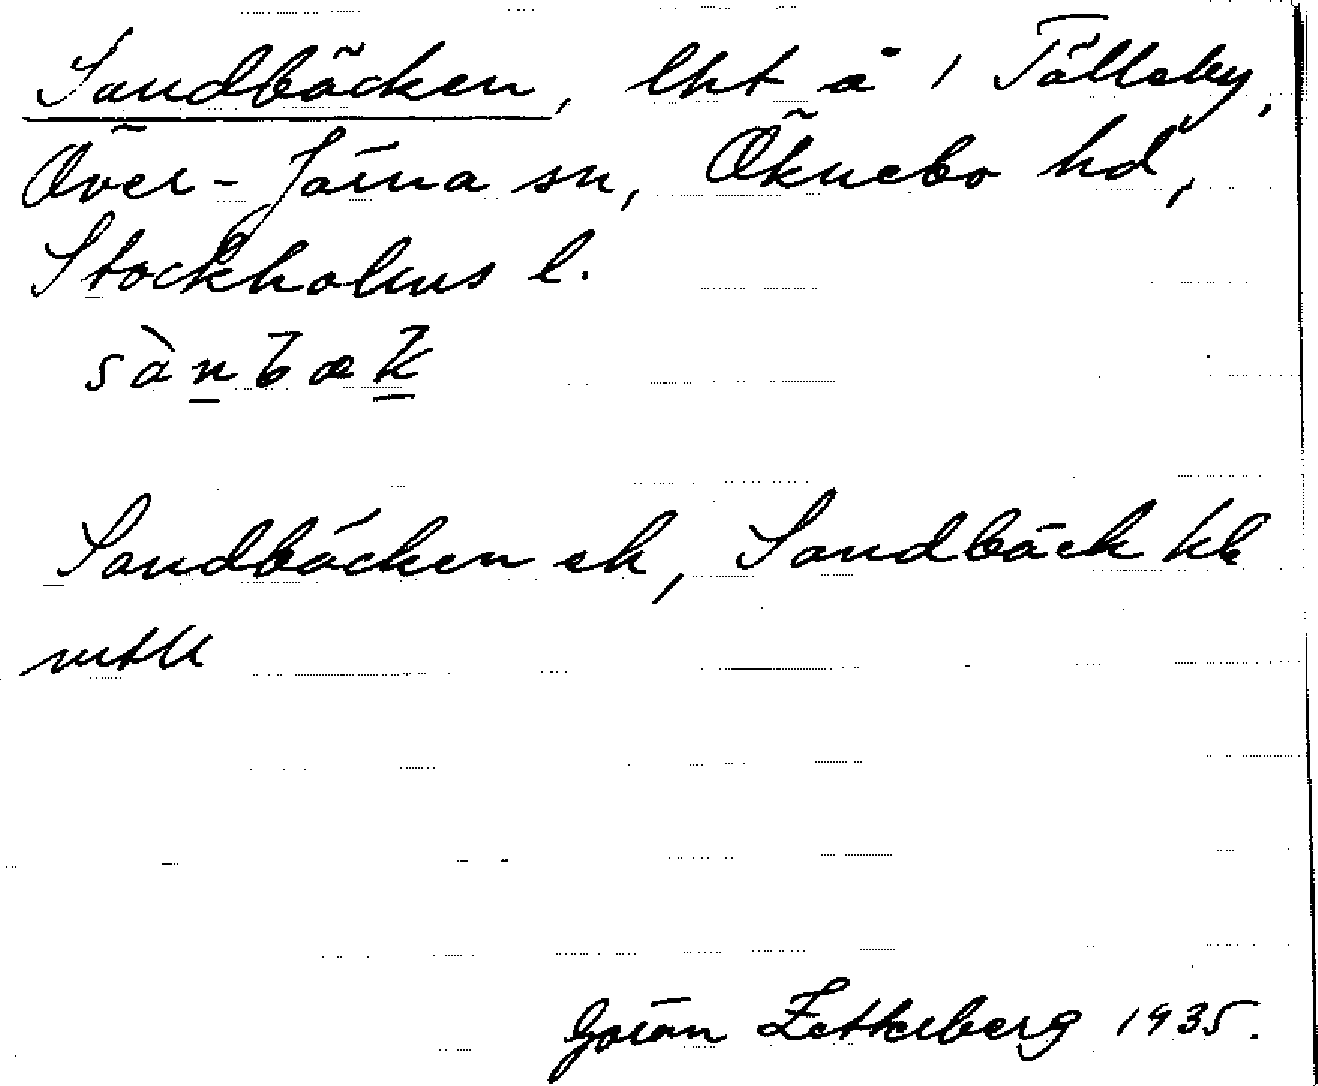 Sandbäcken, lht å 1 Tälleby,
Över-Järna sn, Öknebo hd,
Stockholms l.
sànbæk
Sandbäcken ek, Sandbäck kk
mtll
Göran Zetterberg 1935.